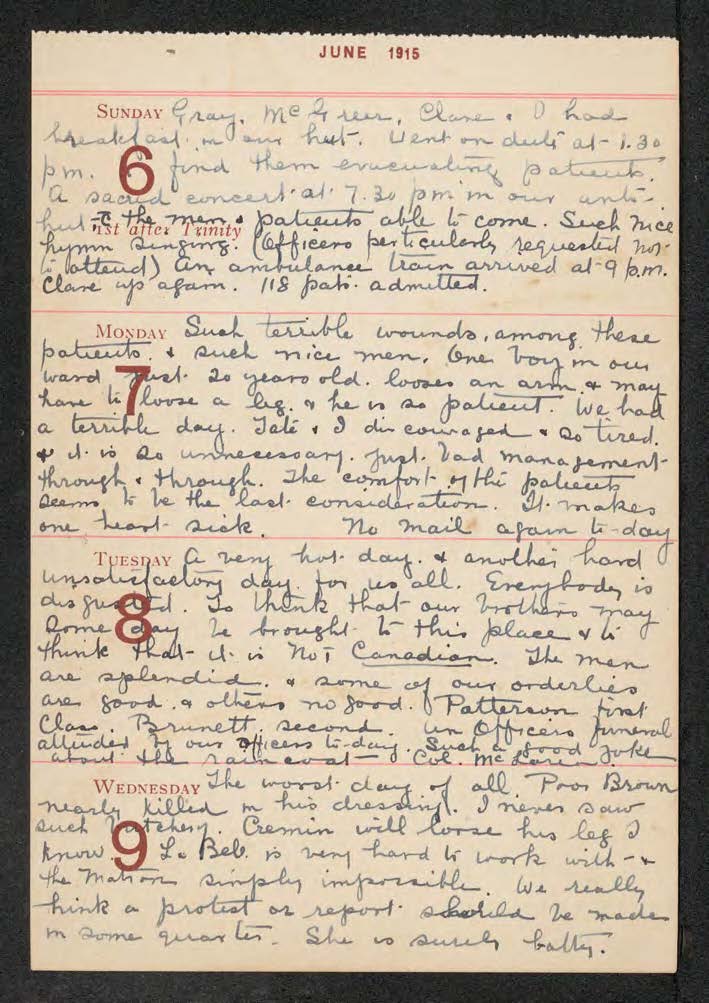 JUNE 1915
SUNDAY Gray, McGreer, Clare & I had
breakfast in our hut. Went on duty at 1.30
p.m. 6 find them evacuating patients.
A sacred concert at 7.30 pm in our ante-
hut c̄ the men & patients able to come. Such nice
1st after Trinity
hymn singing. (Officers particularly requested not
to attend) An ambulance train arrived at 9 p.m.
Clare up again. 118 pats. admitted.
MONDAY Such terrible wounds, among these
patients, & such nice men. One boy in our
ward 7 just 20 years old. looses an arm & may
have to loose a leg. & he is so patient. We had
a terrible day. Tate & I discouraged & so tired.
& it is so unnecessary. Just bad management
through & through. The comfort of the patients
seems to be the last consideration. It makes
one heart sick. No mail again to-day
TUESDAY A very hot day. & another hard
unsatisfactory day. for us all. Everybody is
disgusted. 8 To think that our brothers may
some day be brought to this place & to
think that it is NOT Canadian. The men
are splendid. & some of our orderlies
are good. & others no good. Patterson first
Class. Brunett, second. An Officers funeral
attended by our officers to-day. Such a good joke
about the raincoat - Col. McLaren
WEDNESDAY The worst day of all. Poor Brown
nearly killed in his dressing. I never saw
such butchery. Cremin will loose his leg I
know. 9 Le Beb. is very hard to work with - &
the Matron simply impossible. We really
think a protest or report should be made
in some quarter. She is surely batty.